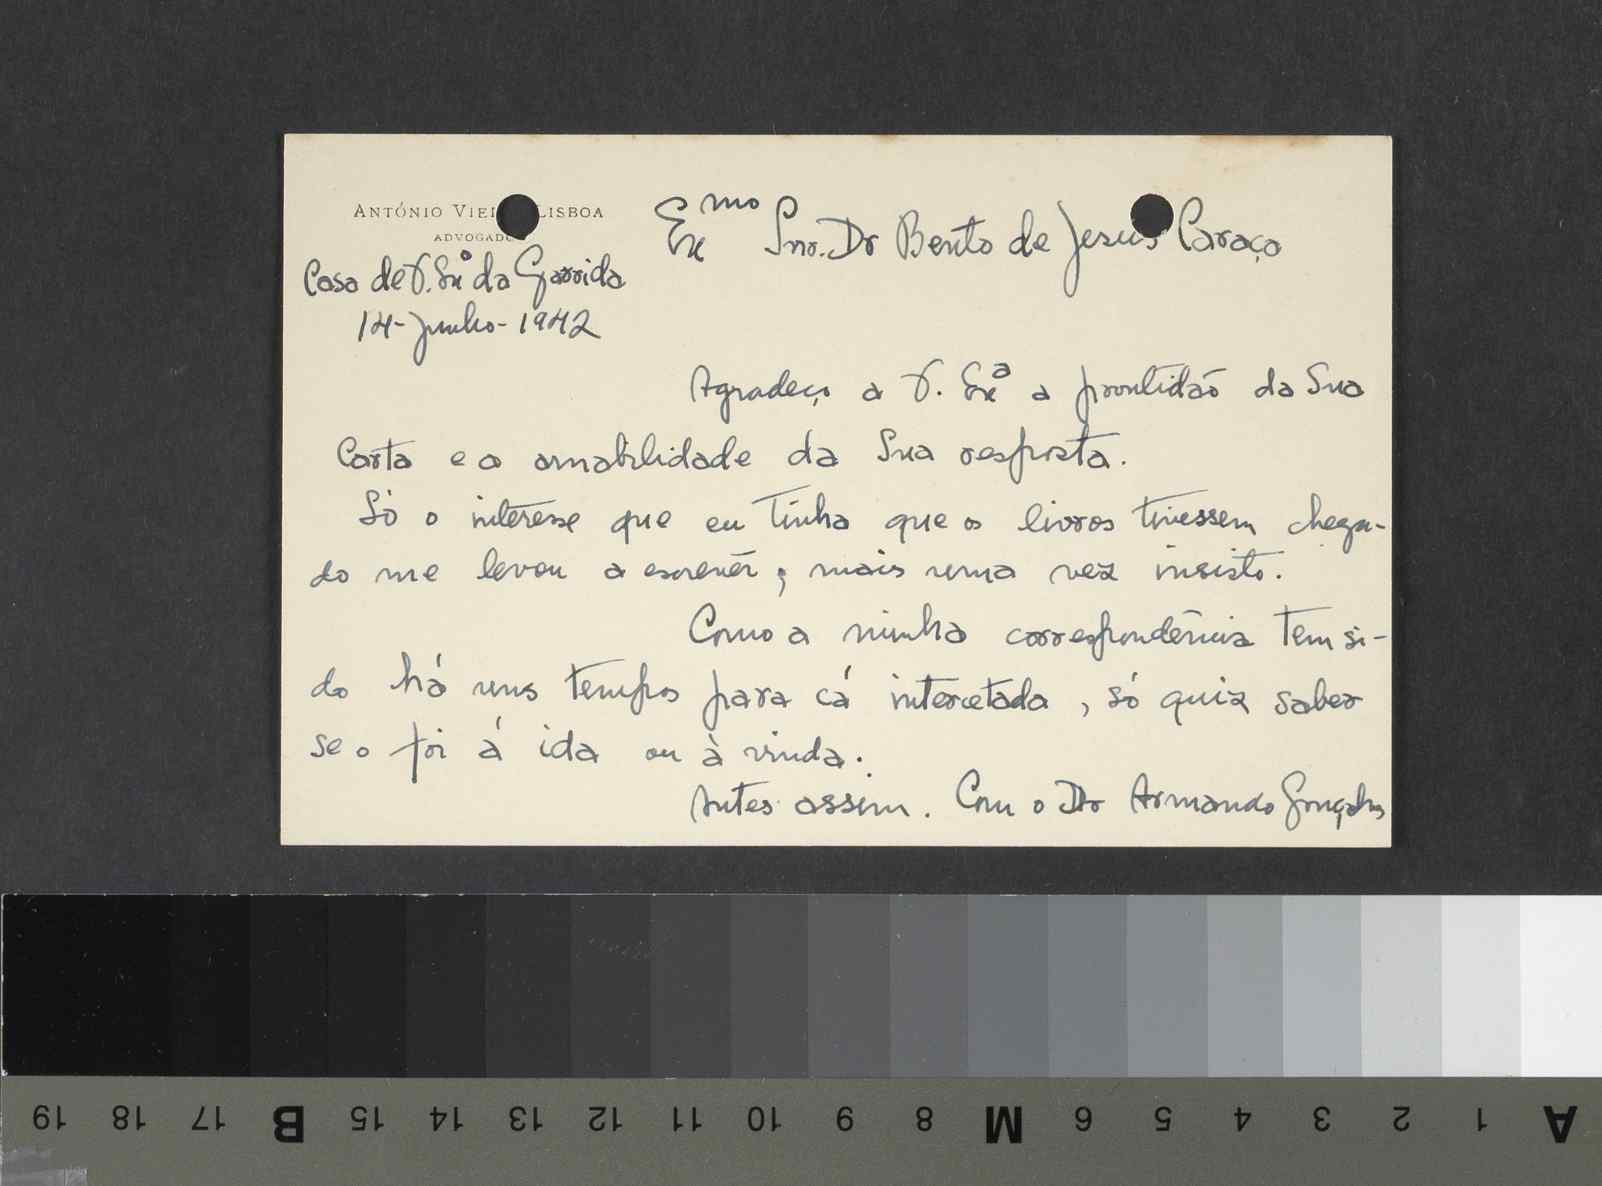 ANTÓNIO VIEI LISBOA
ADVOGADO
Casa de V. Exª da Garrida
14-Junho-1942
Exmo Snr. Dr Bento de Jesus Caraça
Agradeço a V. Exª a prontidão da Sua
Carta e a amabilidade da Sua resposta.
Só o interesse que eu tinha que os livros tivessem chega-
do me levou a escrevêr; mais uma vez insisto.
Como a minha correspondência tem si-
do há uns tempos para cá intercetada, só quiz saber
se o foi á ida ou à vinda.
Antes assim. Com o Dr Armando Gonçalves
A 1 2 3 4 5 6 M 8 9 10 11 12 13 14 15 B 17 18 19